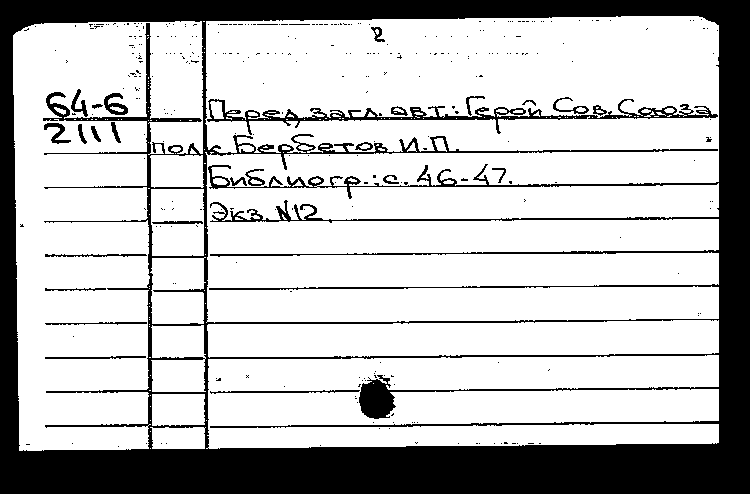 2
64-6 Перед загл. авт.: Герой Сов. Союза
2111 полк. Бербетов И.П.
Библиогр.: с. 46-47.
Экз. N12.